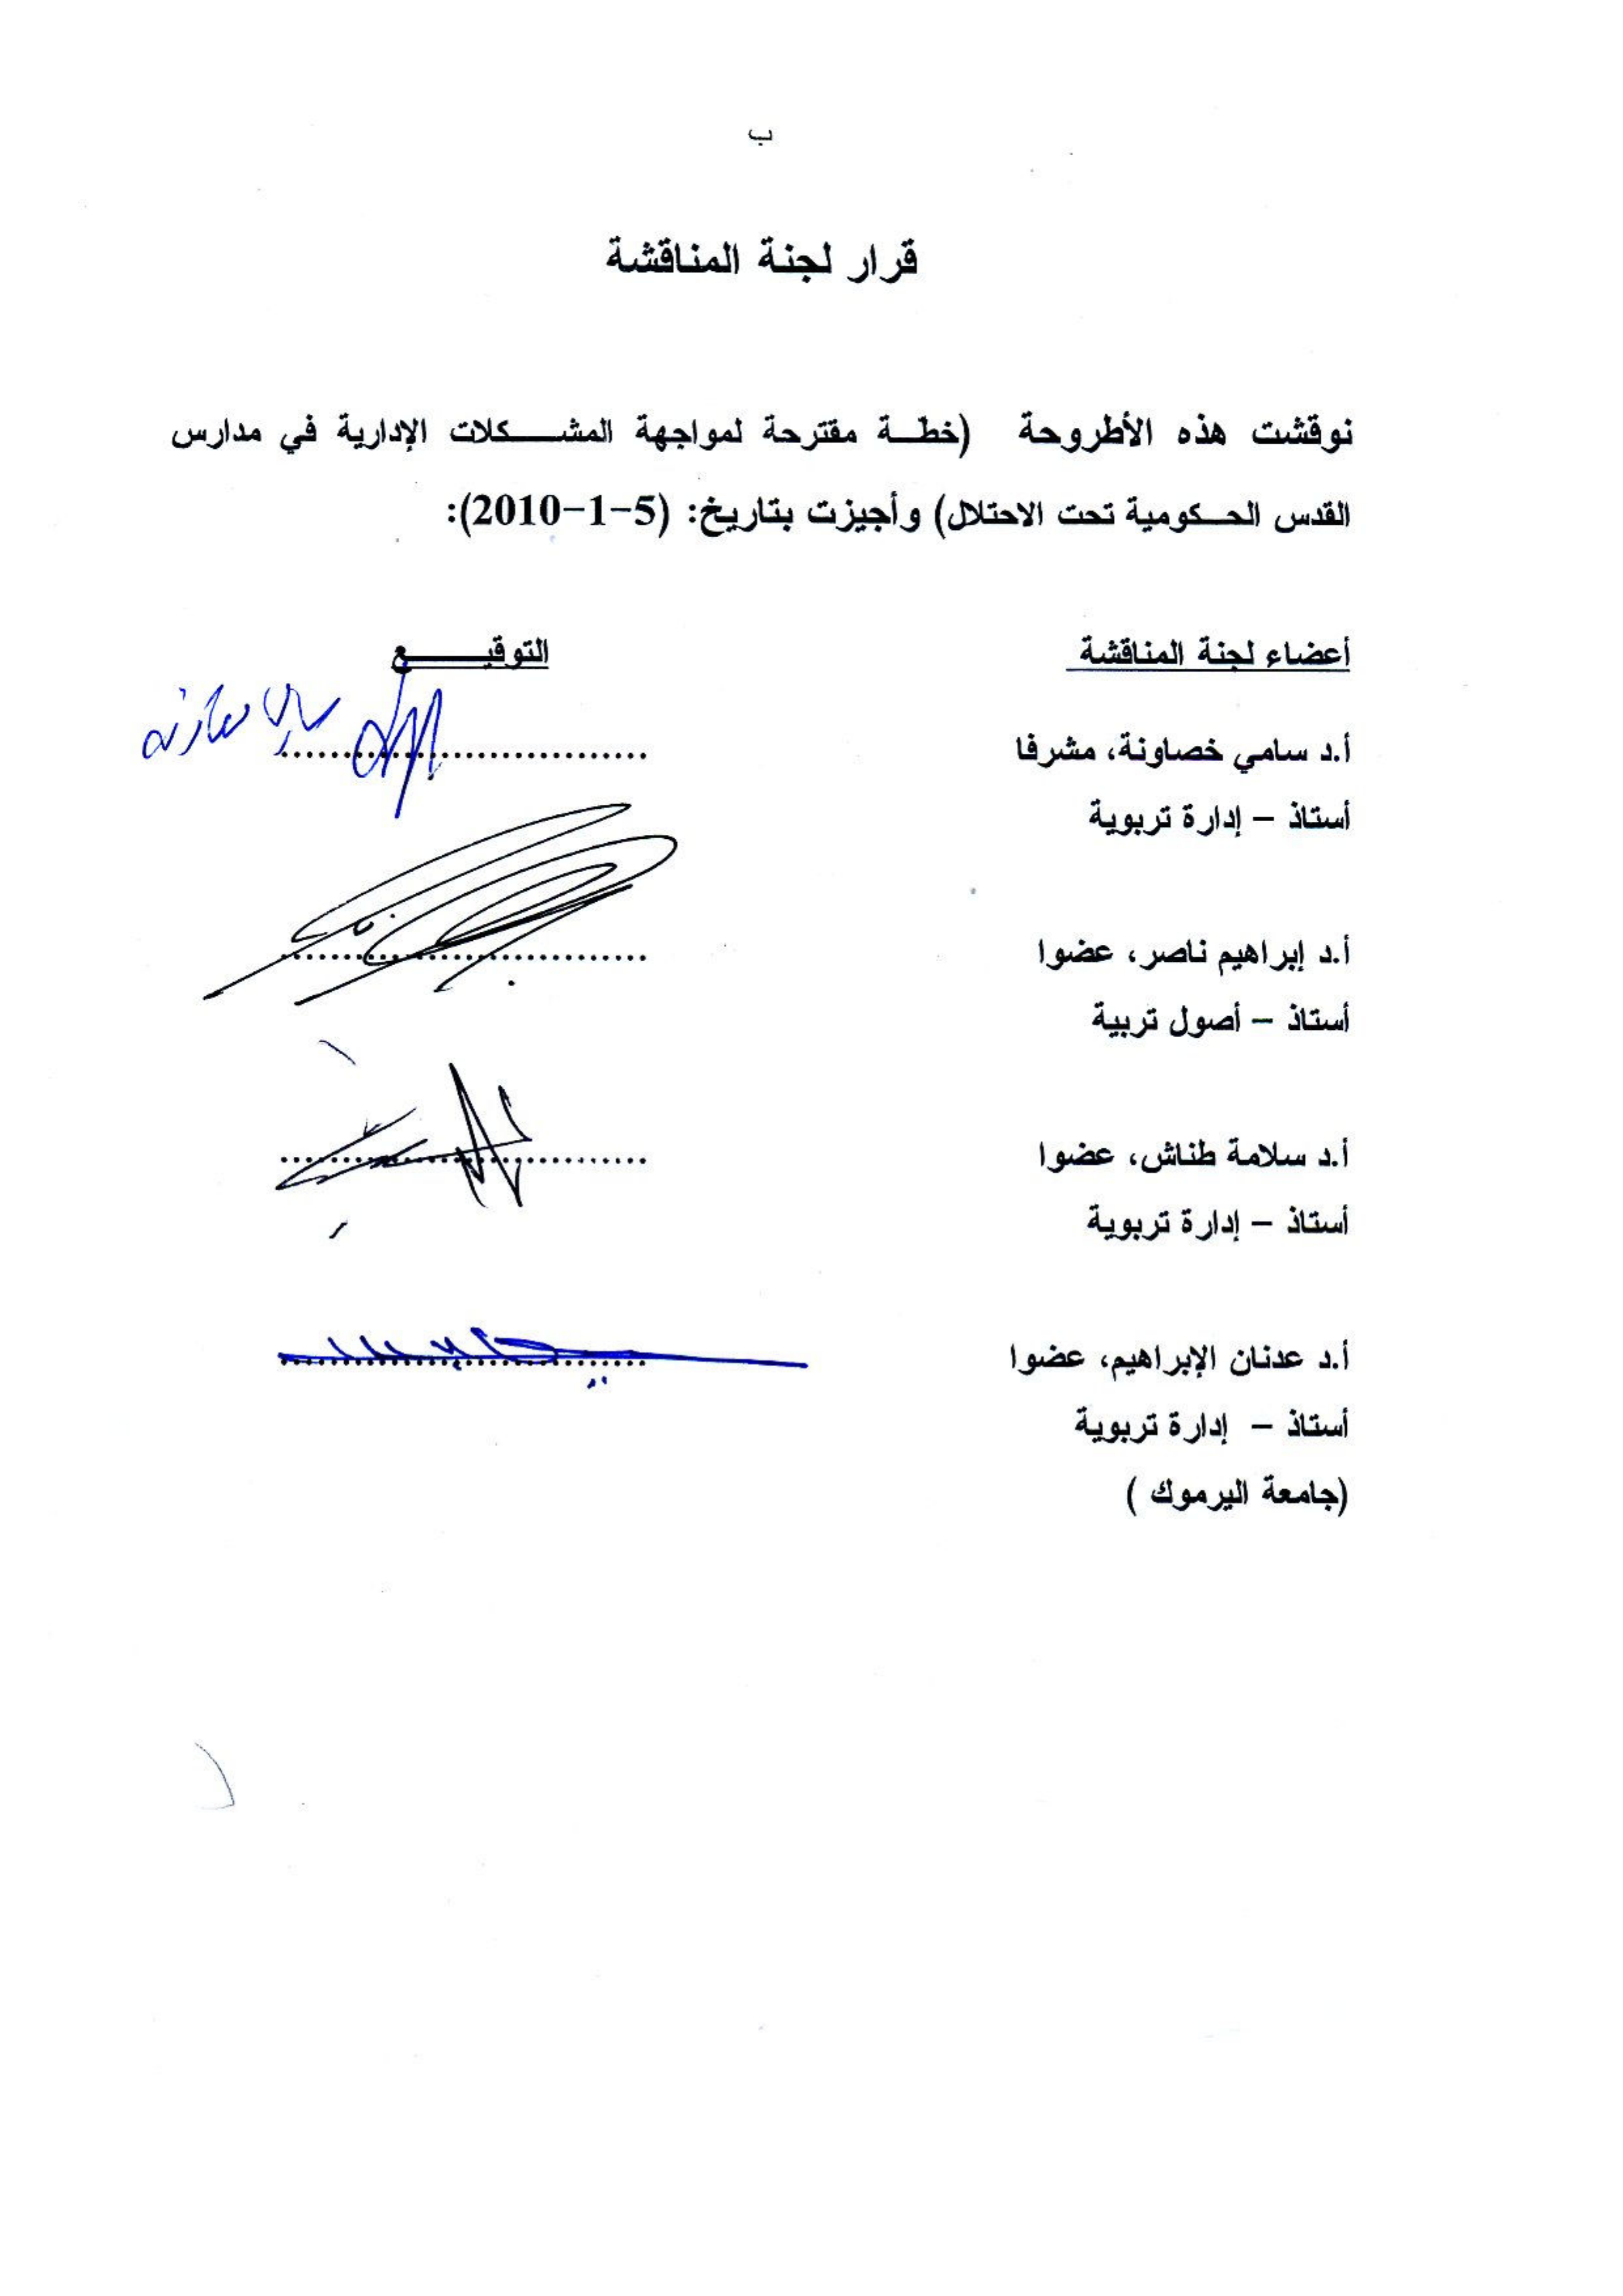 ب
قرار لجنة المناقشة
نوقشت هذه الأطروحة (خطة مقترحة لمواجهة المشكلات الإدارية في مدارس
القدس الحكومية تحت الاحتلال) وأجيزت بتاريخ: (5-1-2010):
أعضاء لجنة المناقشة التوقيع
أ.د سامي خصاونة، مشرفا ..............................
أستاذ – إدارة تربوية
أ.د إبراهيم ناصر، عضوا ..............................
أستاذ – أصول تربية
أ.د سلامة طناش، عضوا ..............................
أستاذ – إدارة تربوية
أ.د عدنان الإبراهيم، عضوا ..............................
أستاذ – إدارة تربوية
(جامعة اليرموك )